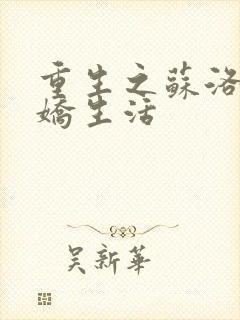 重生之蘇洛
嬌生活
吴新華